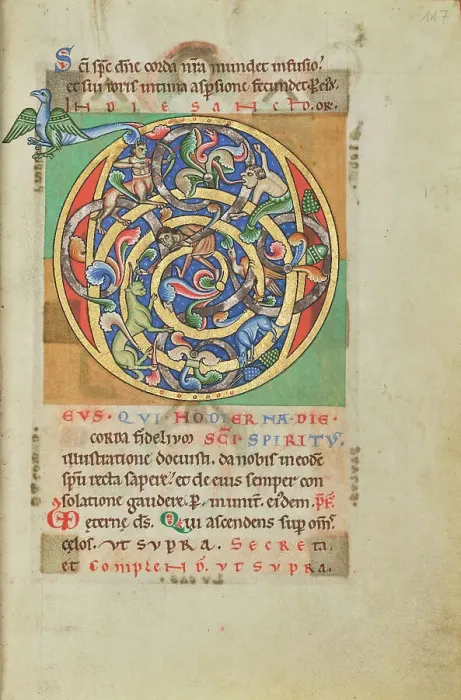 117
Sci spc dne corda nra mundet infusio.
et sui roris intima aspsione fecundet. P. eiusd.
IN DIE SANCTO. OR.
EVS · QVI HODIERNA DIE ·
corda fidelium SCI SPIRITV.
illustratione docuisti. da nobis in eode
spu recta sapere. et de eius semper con
solatione gaudere. P.
eterne ds. Qui ascendens sup oms
celos. VT SVPRA. Secreta.
et Complend. VT SVPRA.